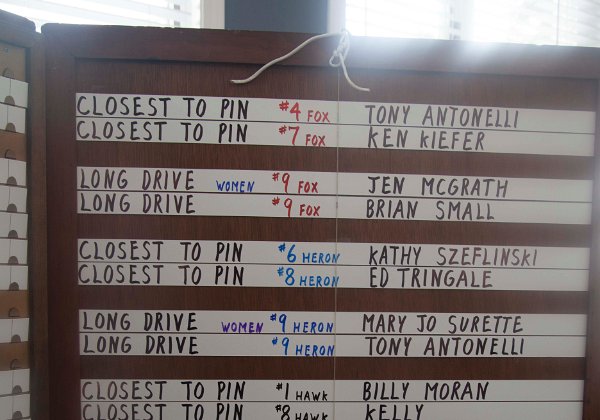 CLOSEST TO PIN #4 FOX TONY ANTONELLI
CLOSEST TO PIN #7 FOX KEN KIEFER
LONG DRIVE WOMEN #9 FOX JEN MCGRATH
LONG DRIVE #9 FOX BRIAN SMALL
CLOSEST TO PIN #6 HERON KATHY SZEFLINSKI
CLOSEST TO PIN #8 HERON ED TRINGALE
LONG DRIVE WOMEN #9 HERON MARY JO SURETTE
LONG DRIVE #9 HERON TONY ANTONELLI
CLOSEST TO PIN #1 HAWK BILLY MORAN
CLOSEST TO PIN #8 HAWK KELLY